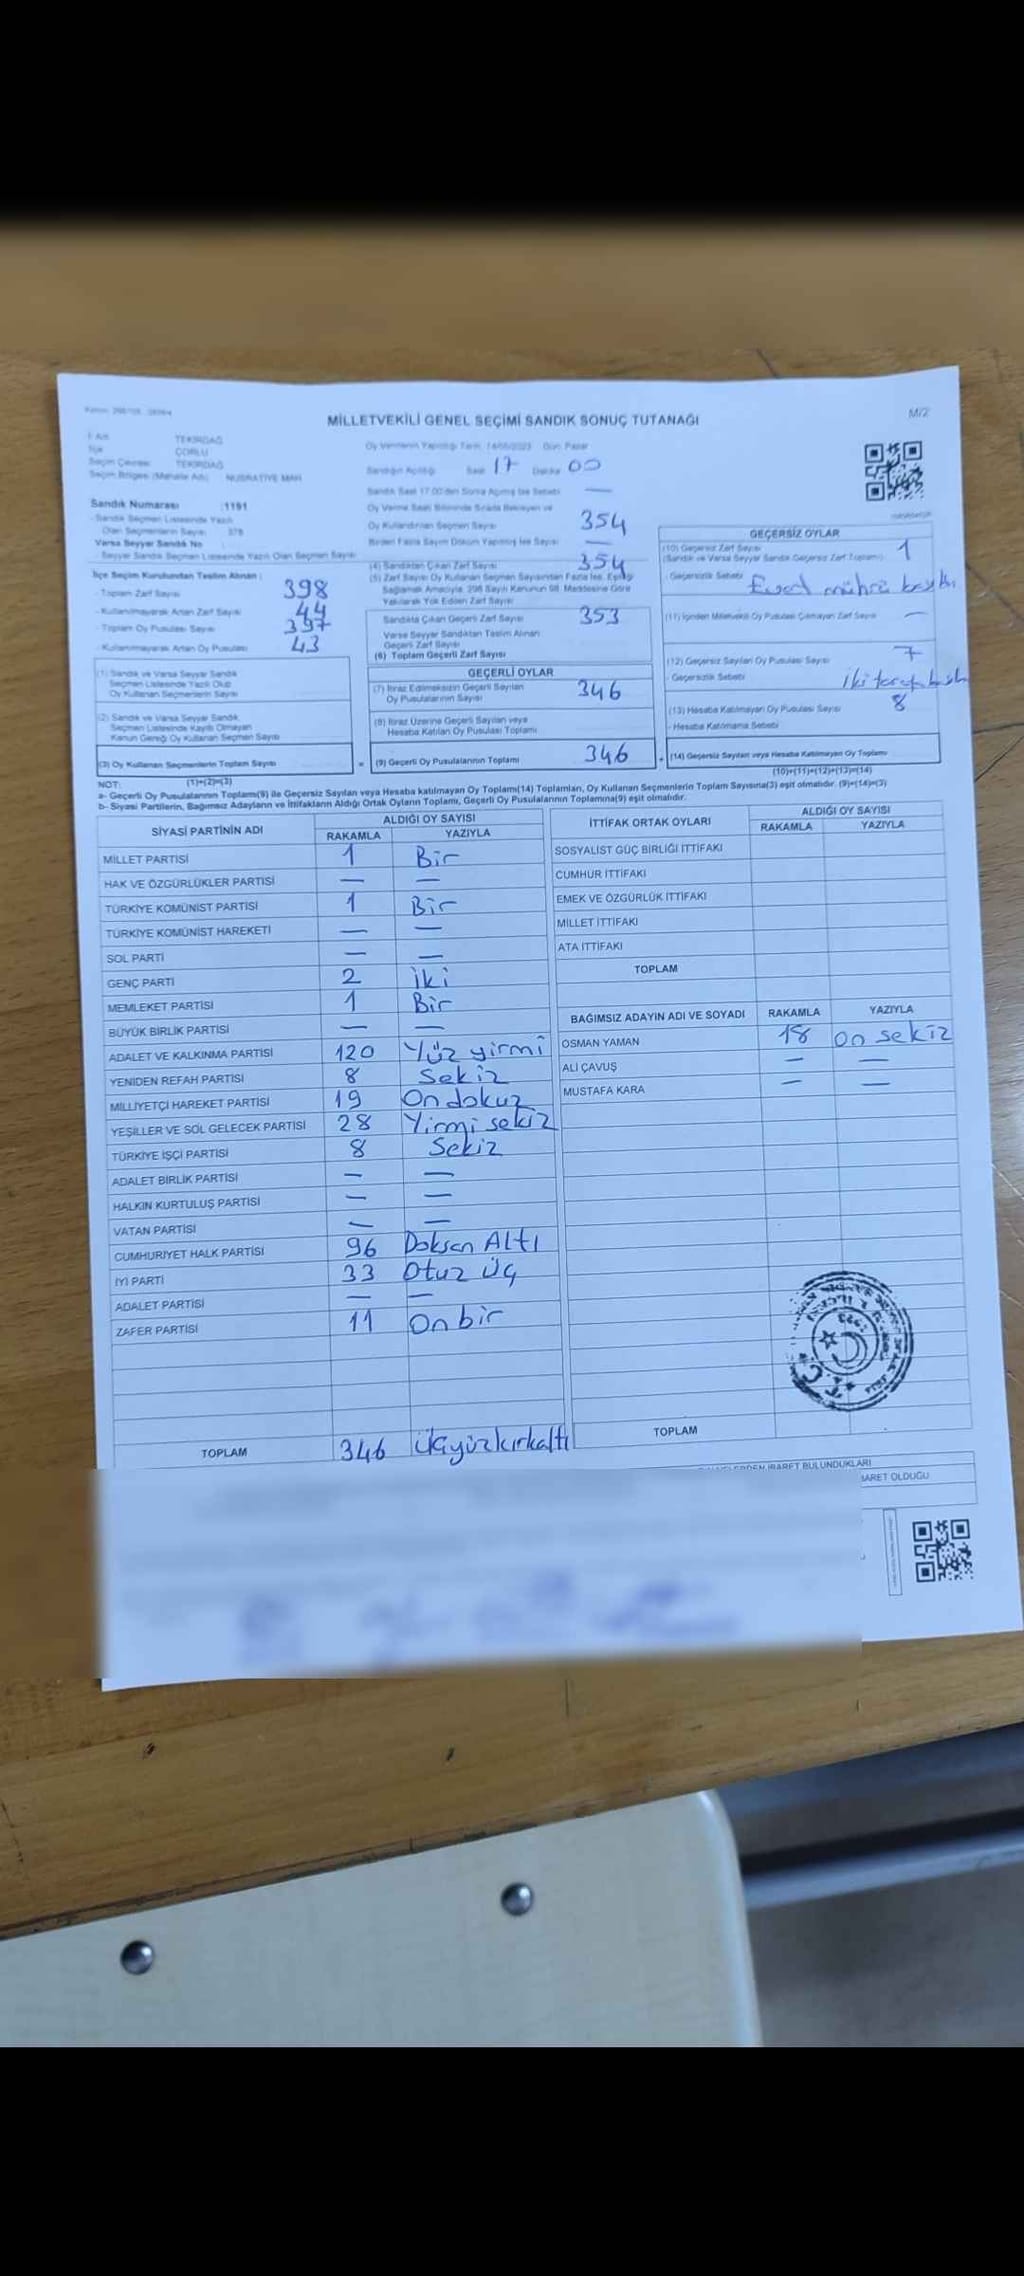 MİLLETVEKİLİ GENEL SEÇİMİ SANDIK SONUÇ TUTANAĞI
M/2
İlçe ÇORLU
TEKİRDAĞ
Seçim Bölgesi (Mahalle Adı) NUSRATİYE MAH
Oy Vermenin Yapıldığı Tarih: 14/05/2023 Gün: Pazar
Sandığın Açıldığı Saat 17 Dakika 00
Sandık Saat 17.00'den Sonra Açılmış İse Sebebi —
Oy Kullandırılan Seçmen Sayısı 354
Birden Fazla Sayım Döküm Yapılmış İse Sayısı —
Sandık Numarası :1191
- Sandık Seçmen Listesinde Yazılı
Olan Seçmenlerin Sayısı 378
Varsa Seyyar Sandık No
- Seyyar Sandık Seçmen Listesinde Yazılı Olan Seçmen Sayısı
İlçe Seçim Kurulundan Teslim Alınan :
- Toplam Zarf Sayısı 398
- Kullanılmayarak Artan Zarf Sayısı 44
- Toplam Oy Pusulası Sayısı 397
- Kullanılmayarak Artan Oy Pusulası 43
(1) Sandık ve Varsa Seyyar Sandık
Seçmen Listesinde Yazılı Olup
Oy Kullanan Seçmenlerin Sayısı
(2) Sandık ve Varsa Seyyar Sandık
Seçmen Listesinde Kayıtlı Olmayan
Kanun Gereği Oy Kullanan Seçmen Sayısı
(3) Oy Kullanan Seçmenlerin Toplam Sayısı
(1)+(2)=(3)
(4) Sandıktan Çıkan Zarf Sayısı 354
(5) Zarf Sayısı Oy Kullanan Seçmen Sayısından Fazla İse, Eşitliği
Sağlamak Amacıyla, 298 Sayılı Kanunun 98. Maddesine Göre
Yakılarak Yok Edilen Zarf Sayısı
Sandıkta Çıkan Geçerli Zarf Sayısı 353
Varsa Seyyar Sandıktan Teslim Alınan
Geçerli Zarf Sayısı
(6) Toplam Geçerli Zarf Sayısı
GEÇERLİ OYLAR
(7) İtiraz Edilmeksizin Geçerli Sayılan
Oy Pusulalarının Sayısı 346
(8) İtiraz Üzerine Geçerli Sayılan veya
Hesaba Katılan Oy Pusulası Toplamı
= (9) Geçerli Oy Pusulalarının Toplamı 346
GEÇERSİZ OYLAR
(10) Geçersiz Zarf Sayısı 1
(Sandık ve Varsa Seyyar Sandık Geçersiz Zarf Toplamı)
- Geçersizlik Sebebi
(11) İçinden Milletvekili Oy Pusulası Çıkmayan Zarf Sayısı —
(12) Geçersiz Sayılan Oy Pusulası Sayısı 7
- Geçersizlik Sebebi iki
(13) Hesaba Katılmayan Oy Pusulası Sayısı 8
- Hesaba Katılmama Sebebi
+ (14) Geçersiz Sayılan veya Hesaba Katılmayan Oy Toplamı
(10)+(11)+(12)+(13)=(14)
NOT:
a- Geçerli Oy Pusulalarının Toplamı(9) ile Geçersiz Sayılan veya Hesaba katılmayan Oy Toplamı(14) Toplamları, Oy Kullanan Seçmenlerin Toplam Sayısına(3) eşit olmalıdır. (9)+(14)=(3)
b- Siyasi Partilerin, Bağımsız Adayların ve İttifakların Aldığı Ortak Oyların Toplamı, Geçerli Oy Pusulalarının Toplamına(9) eşit olmalıdır.
SİYASİ PARTİNİN ADI ALDIĞI OY SAYISI
RAKAMLA YAZIYLA
MİLLET PARTİSİ 1 Bir
HAK VE ÖZGÜRLÜKLER PARTİSİ — —
TÜRKİYE KOMÜNİST PARTİSİ 1 Bir
TÜRKİYE KOMÜNİST HAREKETİ — —
SOL PARTİ — —
GENÇ PARTİ 2 İki
MEMLEKET PARTİSİ 1 Bir
BÜYÜK BİRLİK PARTİSİ — —
ADALET VE KALKINMA PARTİSİ 120 Yüz yirmi
YENİDEN REFAH PARTİSİ 8 Sekiz
MİLLİYETÇİ HAREKET PARTİSİ 19 On dokuz
YEŞİLLER VE SOL GELECEK PARTİSİ 28 Yirmi sekiz
TÜRKİYE İŞÇİ PARTİSİ 8 Sekiz
ADALET BİRLİK PARTİSİ — —
HALKIN KURTULUŞ PARTİSİ — —
VATAN PARTİSİ — —
CUMHURİYET HALK PARTİSİ 96 Doksan Altı
İYİ PARTİ 33 Otuz üç
ADALET PARTİSİ — —
ZAFER PARTİSİ 11 On bir
TOPLAM 346 üçyüzkırkaltı
İTTİFAK ORTAK OYLARI ALDIĞI OY SAYISI
RAKAMLA YAZIYLA
SOSYALİST GÜÇ BİRLİĞİ İTTİFAKI
CUMHUR İTTİFAKI
EMEK VE ÖZGÜRLÜK İTTİFAKI
MİLLET İTTİFAKI
ATA İTTİFAKI
TOPLAM
BAĞIMSIZ ADAYIN ADI VE SOYADI RAKAMLA YAZIYLA
OSMAN YAMAN 18 on sekiz
ALİ ÇAVUŞ — —
MUSTAFA KARA — —
TOPLAM
İBARET BULUNDUKLARI
İBARET OLDUĞU